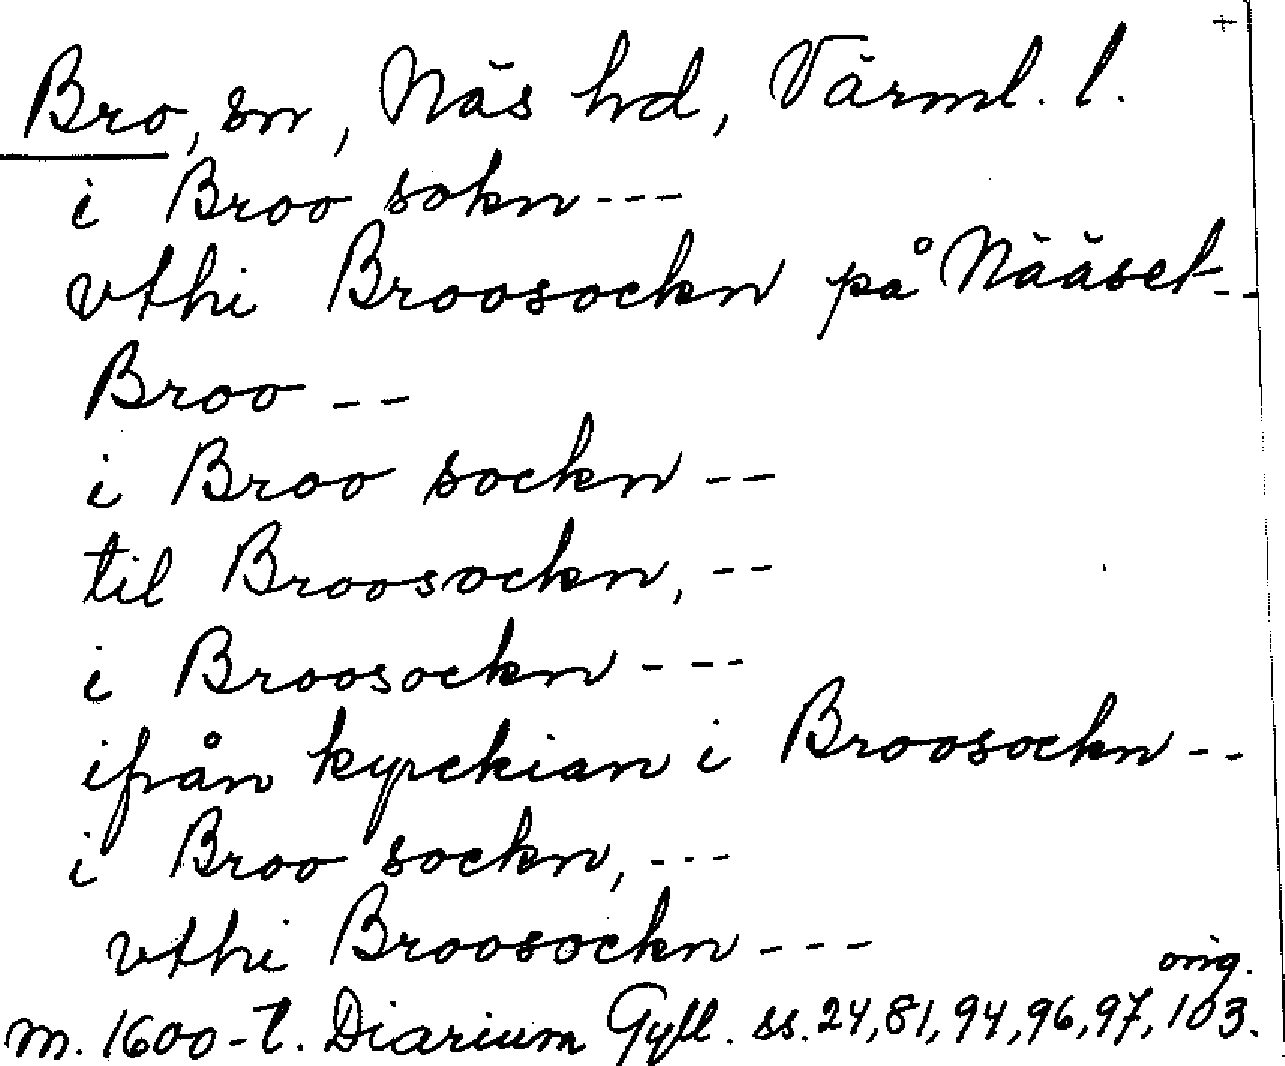 +
Bro, sn, Näs hd, Värml. l.
i Broo sokn---
vthi Broosockn på Nääset--
Broo --
i Broo sockn --
til Broosockn, --
i Broosockn ---
ifrån kyrckian i Broosockn --
i Broo sockn, ---
vthi Broosockn ---
orig.
m. 1600-t. Diarium Gyll. ss. 24, 81, 94, 96, 97, 103.